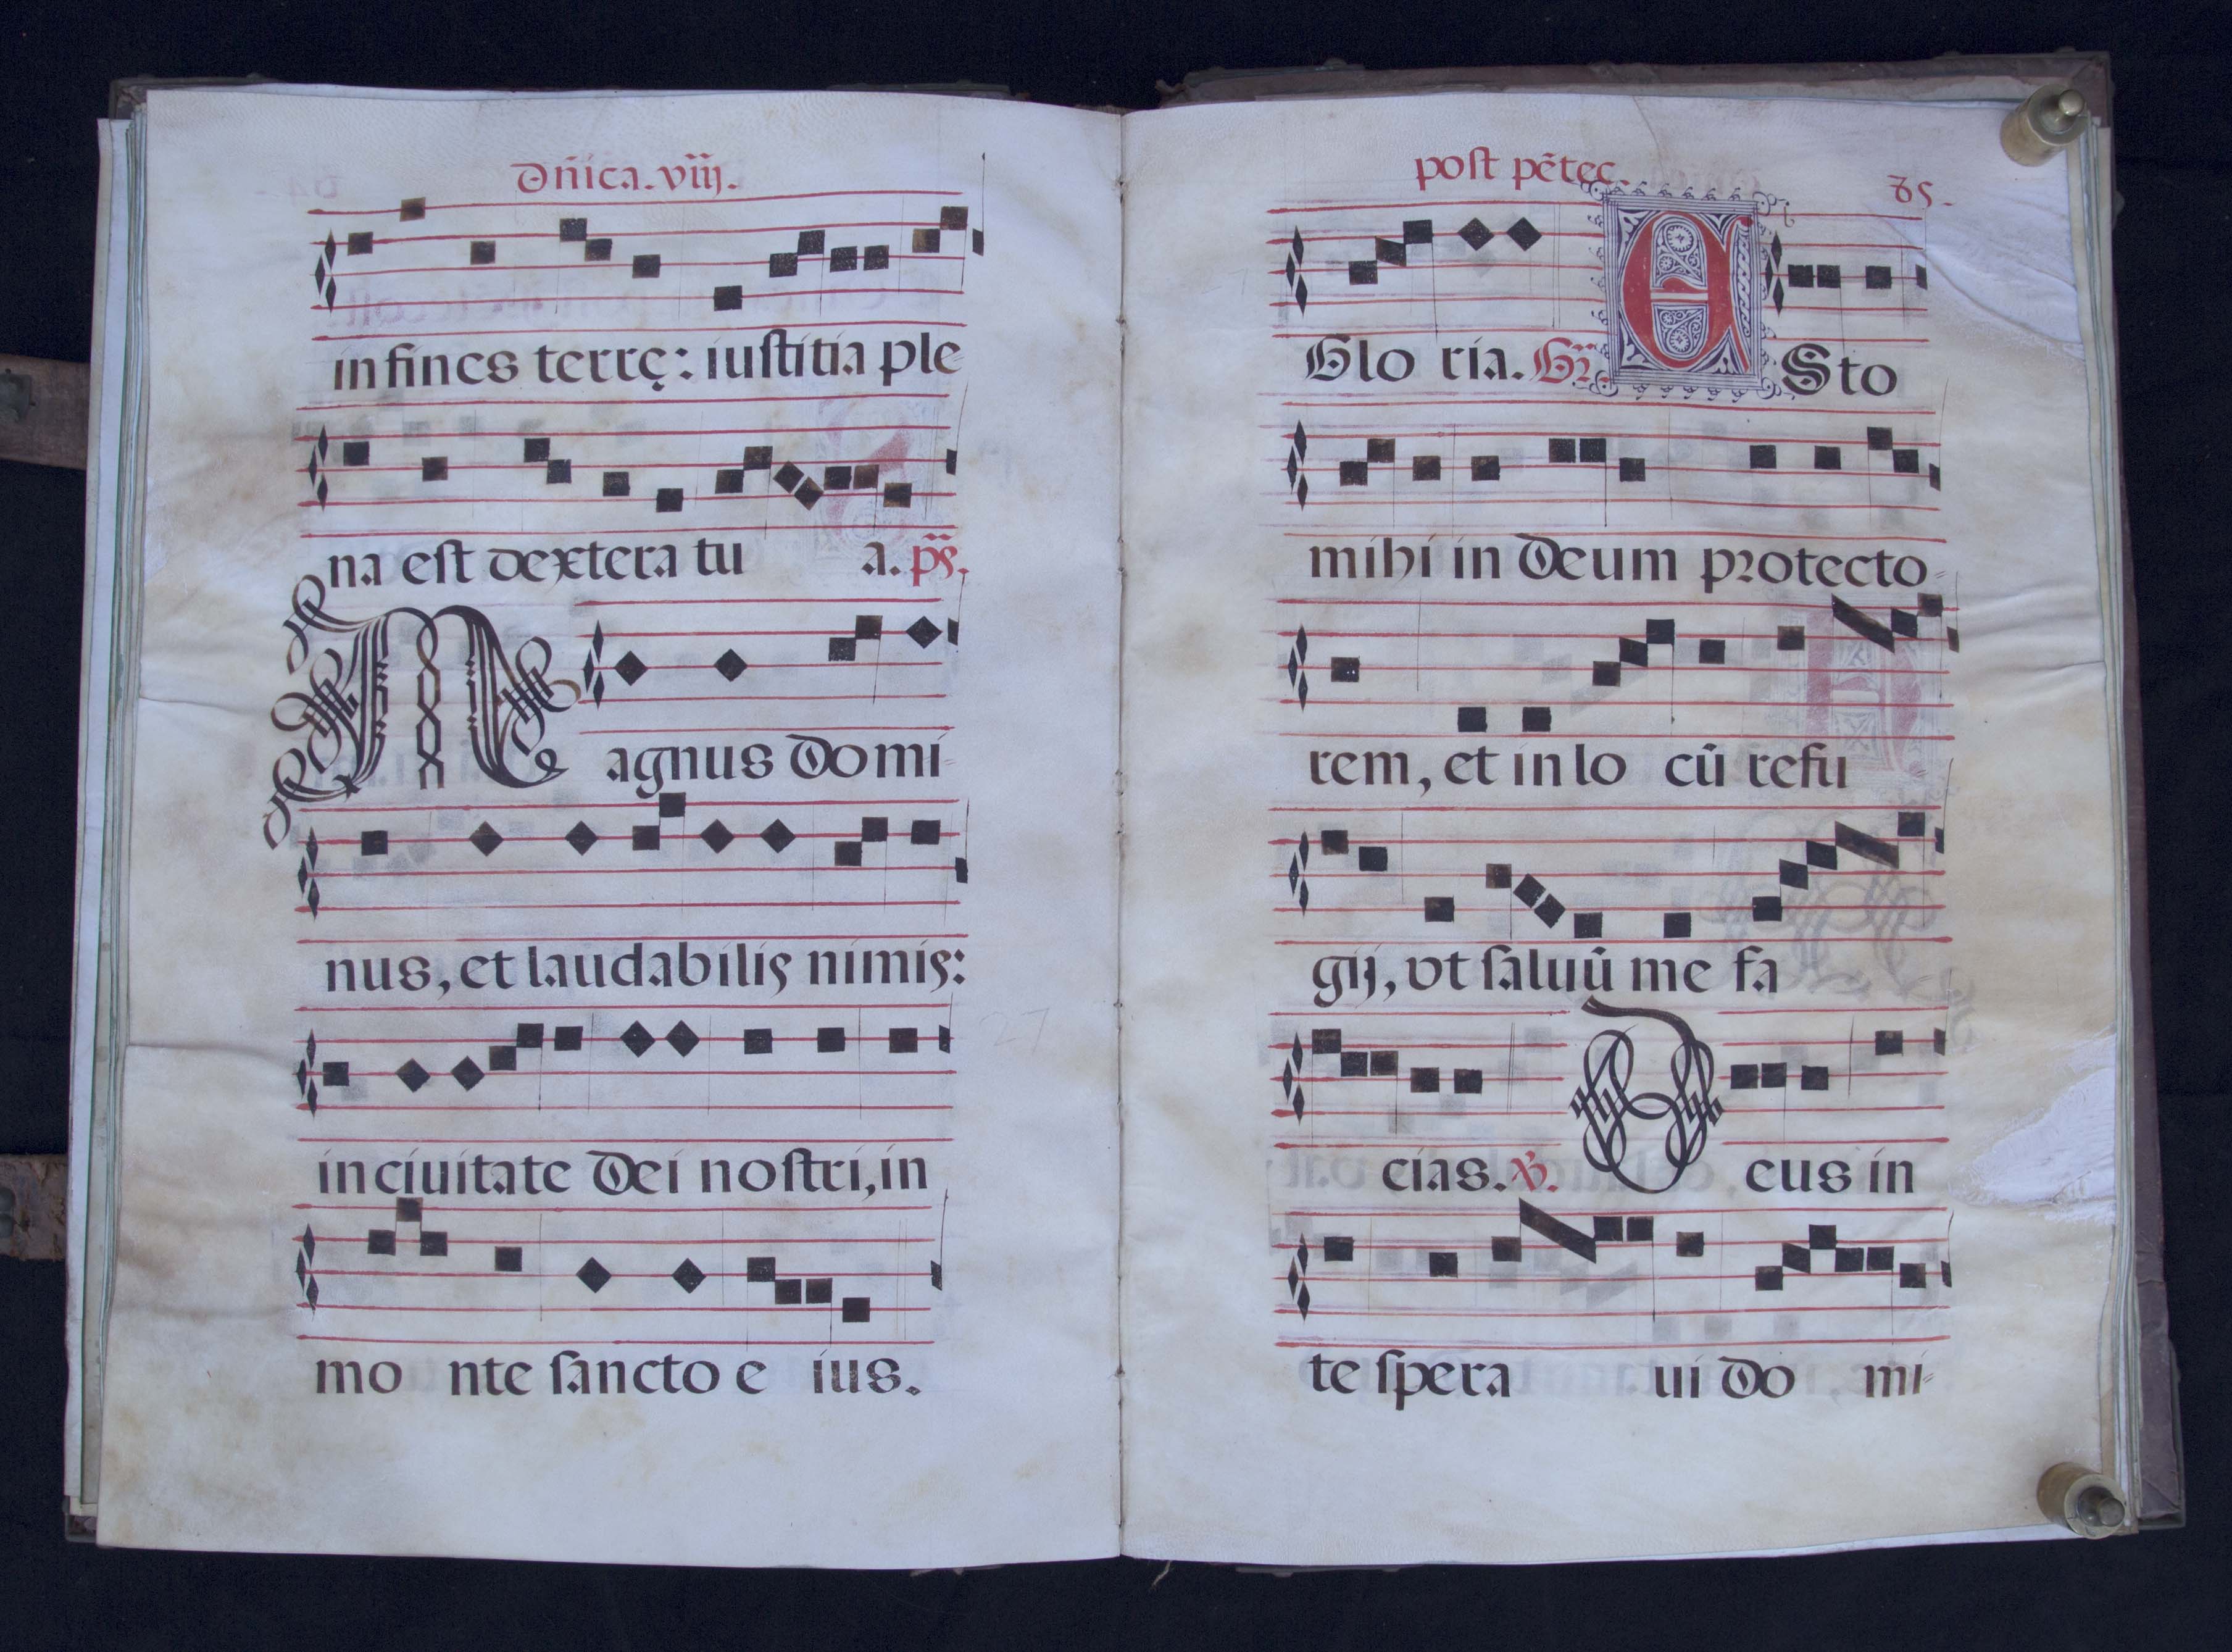 Dñica. viij.
in fines terrę: iustitia ple-
na est dextera tu a. ps.
Magnus Domi-
nus, et laudabilis nimis:
in ciuitate Dei nostri, in
mo nte sancto e ius.
post pētec. 85.
Glo ria. Gr. ESto
mihi in Deum protecto-
rem, et in lo cū refu
gij, vt saluū me fa
cias. ℣. Deus in
te spera ui Do mi-